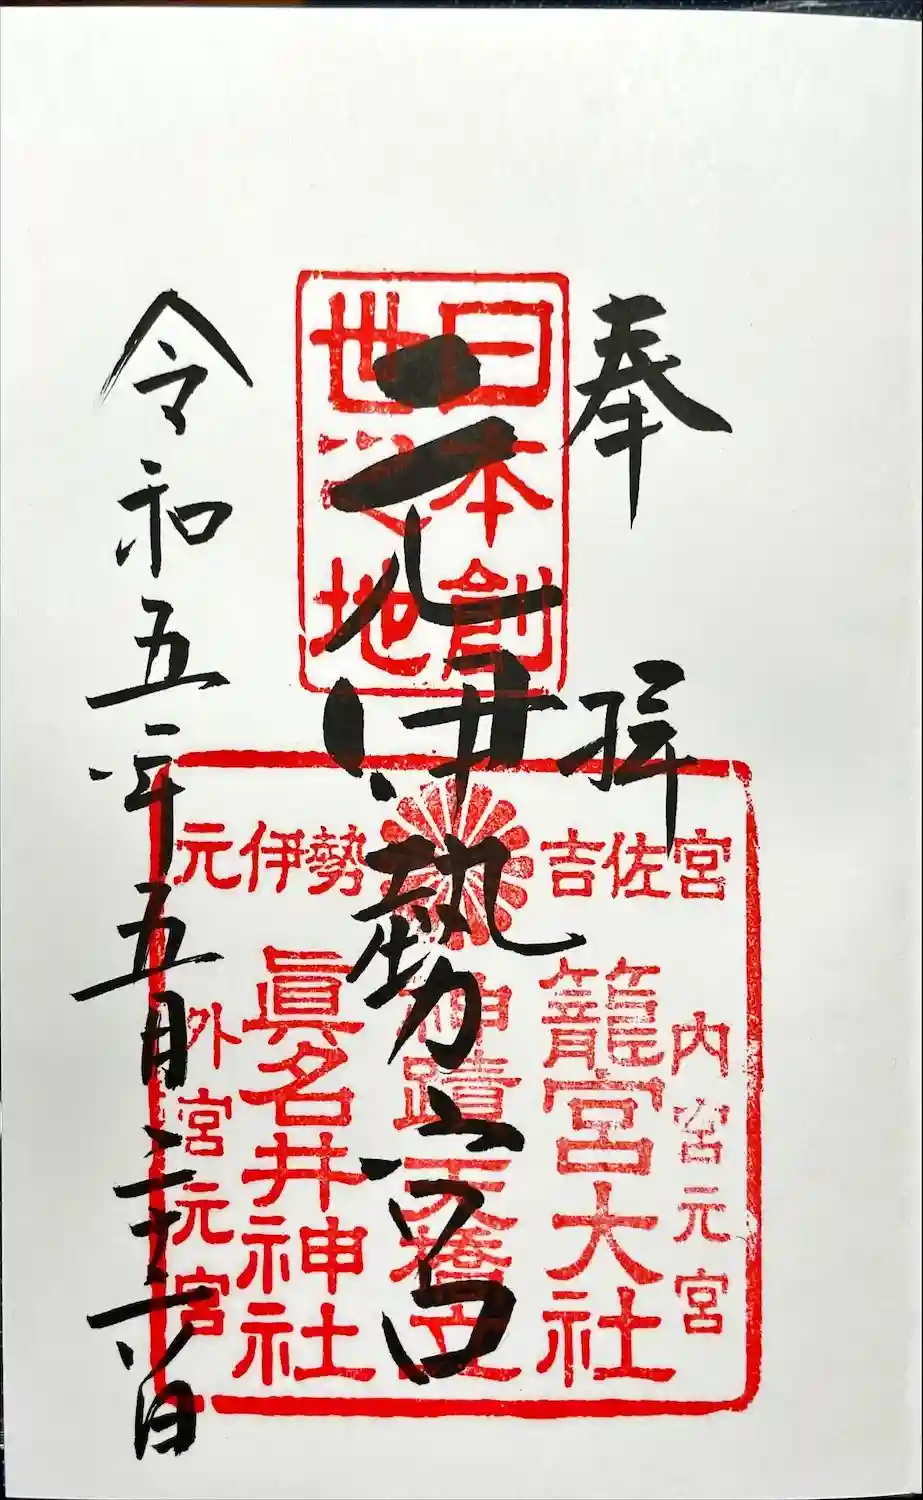 奉拝
元伊勢宮
令和五年五月二十六日
日本創
世之地
元伊勢
吉佐宮
内宮元宮
籠宮大社
神蹟天橋立
眞名井神社
外宮元宮